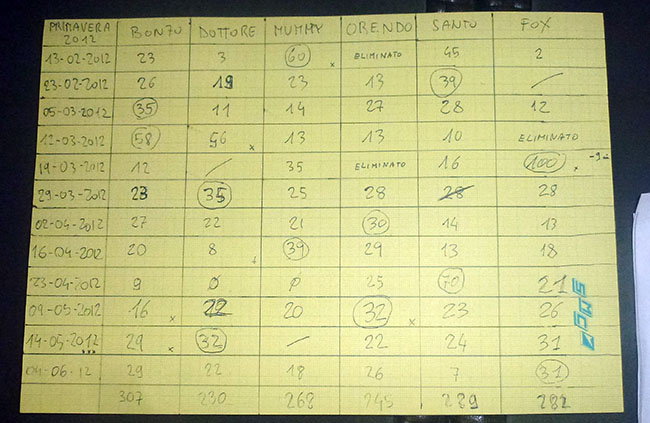 PRIMAVERA 2012 BONZO DOTTORE MUMMY ORENDO SANTO FOX
13-02-2012 23 3 60 x ELIMINATO 45 2
23-02-2012 26 19 23 13 39 /
05-03-2012 35 11 14 27 28 12
12-03-2012 58 56 x 13 13 10 ELIMINATO
19-03-2012 12 / 35 ELIMINATO 16 100 x -9-
29-03-2012 23 35 25 28 28 28
02-04-2012 27 22 21 30 14 13
16-04-2012 20 8 39 29 13 18
23-04-2012 9 0 0 25 70 21
09-05-2012 16 x 22 20 32 x 23 26
14-05-2012 29 x 32 / 22 24 31
04-06-12 29 22 18 26 7 31
307 230 268 245 289 282